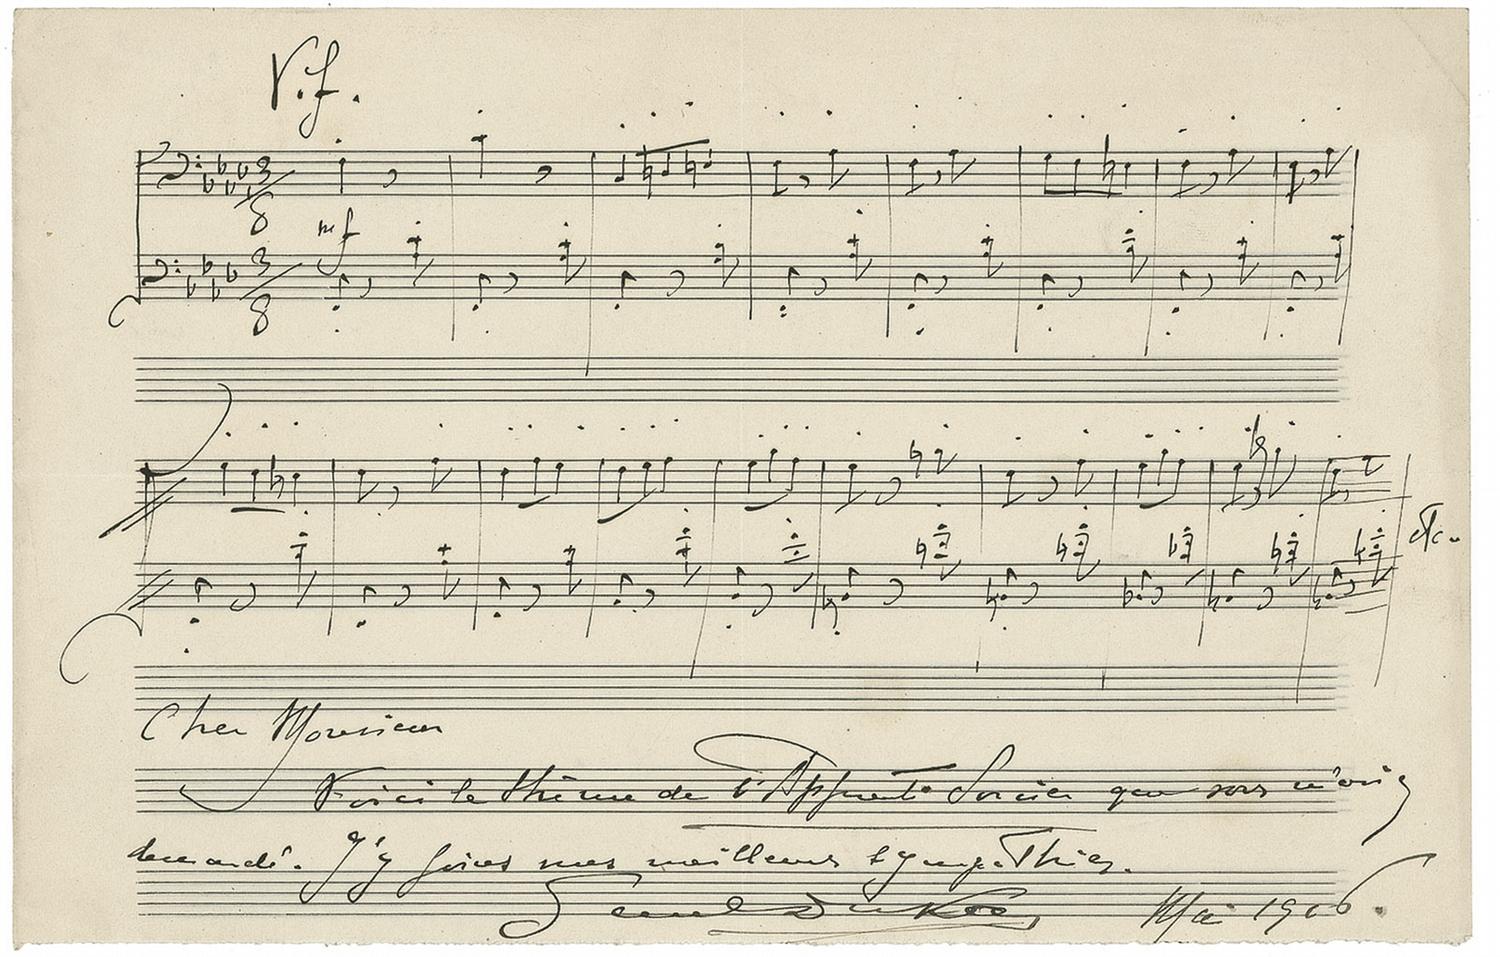 Vif.
3/8
mf
3/8
etc.
Cher Monsieur
Voici le thème de l'Apprenti Sorcier que vous m'aviez
demandé. J'y joins mes meilleures sympathies.
Paul Dukas
Mai 1906.